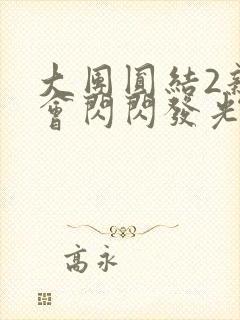 大團圓結2新
會閃閃發光
高永